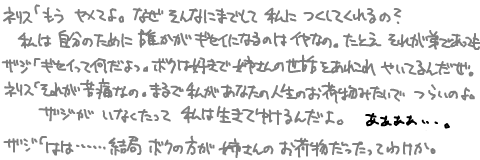 ネリス「もう ヤメてよ。なぜ そんなにまでして 私に つくしてくれるの?
私は 自分のために 誰かが ギセイになるのは イヤなの。たとえ それが弟であっても
ザジ「ギセイって何だよっ。ボクは好きで 姉さんの世話を あれこれ やいてるんだぜ。
ネリス「それが苦痛なの。まるで私があなたの人生のお荷物みたいで つらいのよ。
ザジが いなくたって 私は生きてゆけるんだよ。 あぁぁぁ・・・。
ザジ「はは……結局 ボクの方が 姉さんの お荷物だったってわけか。